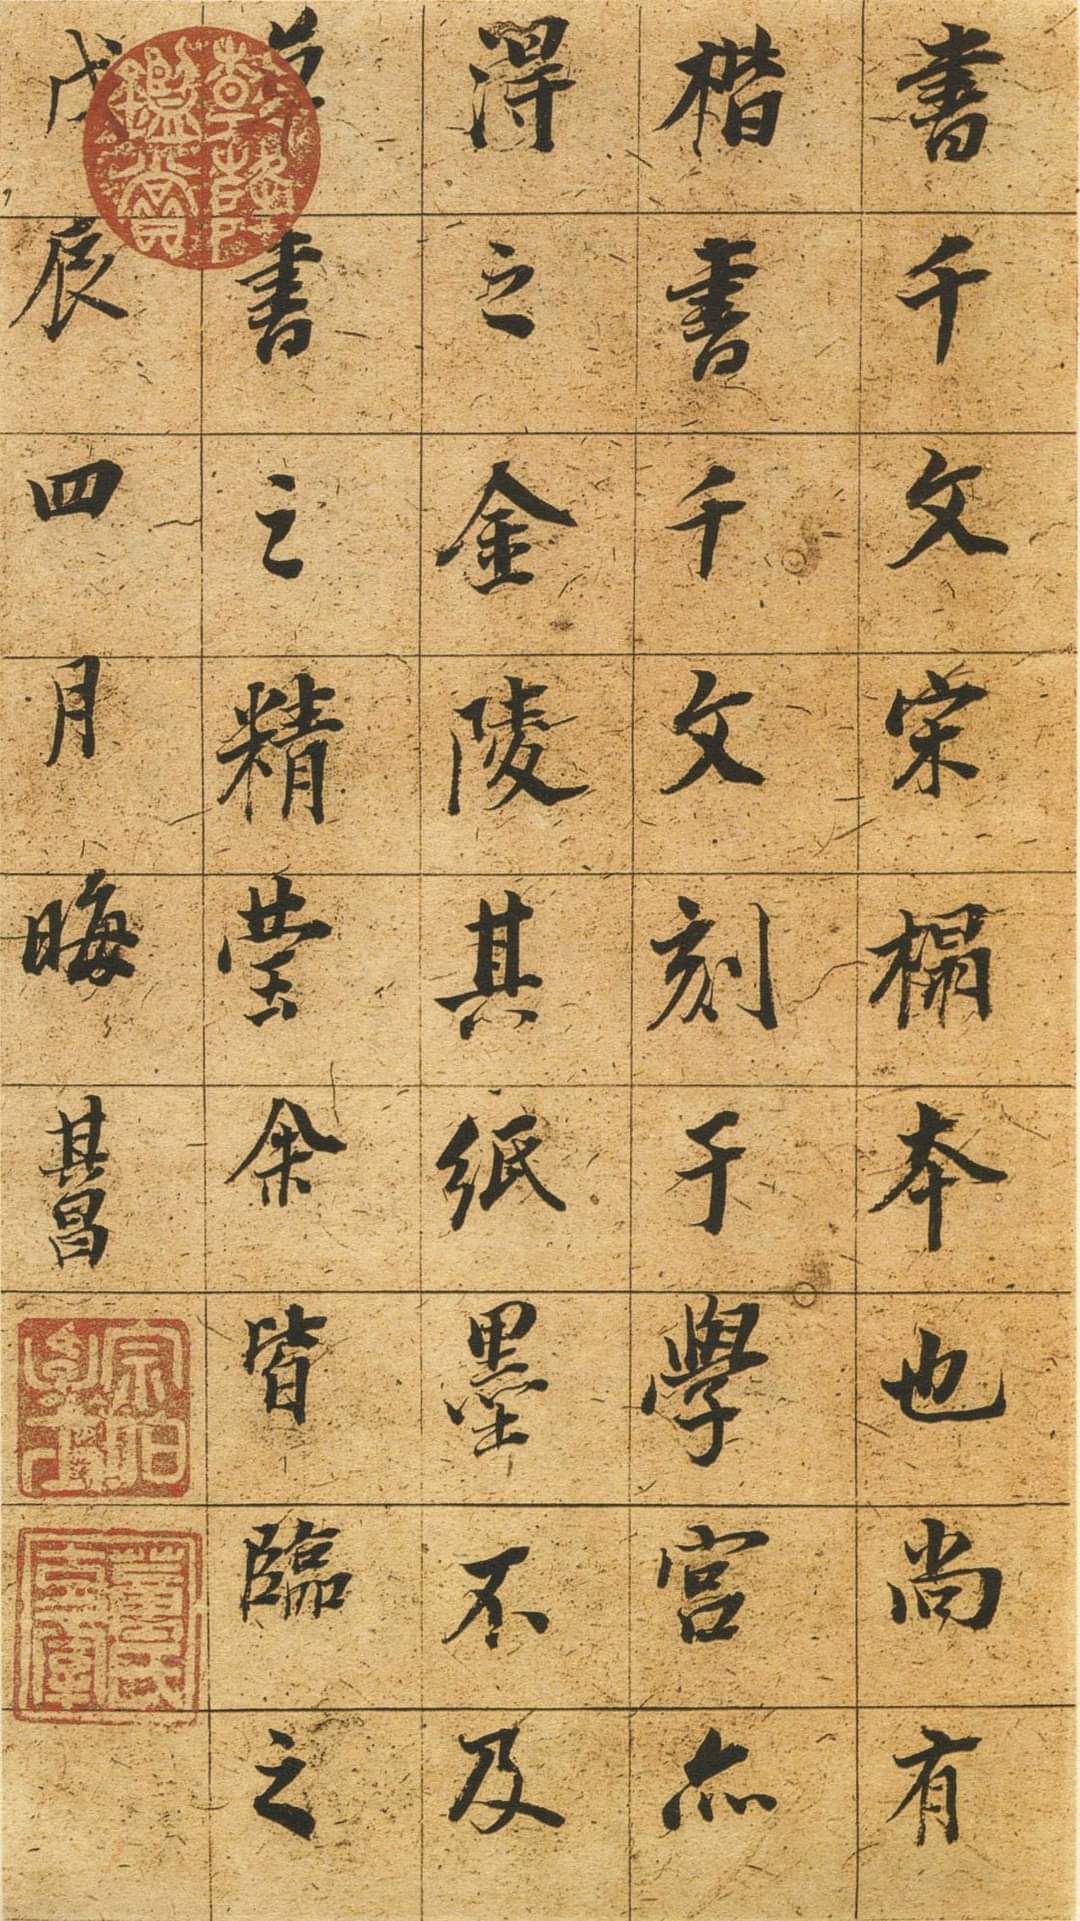 書千文宋榻本也尚有
楷書千文刻于學宮亦
得之金陵其紙墨不及
草書之精瑩余皆臨之
戊辰四月晦其昌
乾隆鑑賞
宗伯學士
董氏玄宰